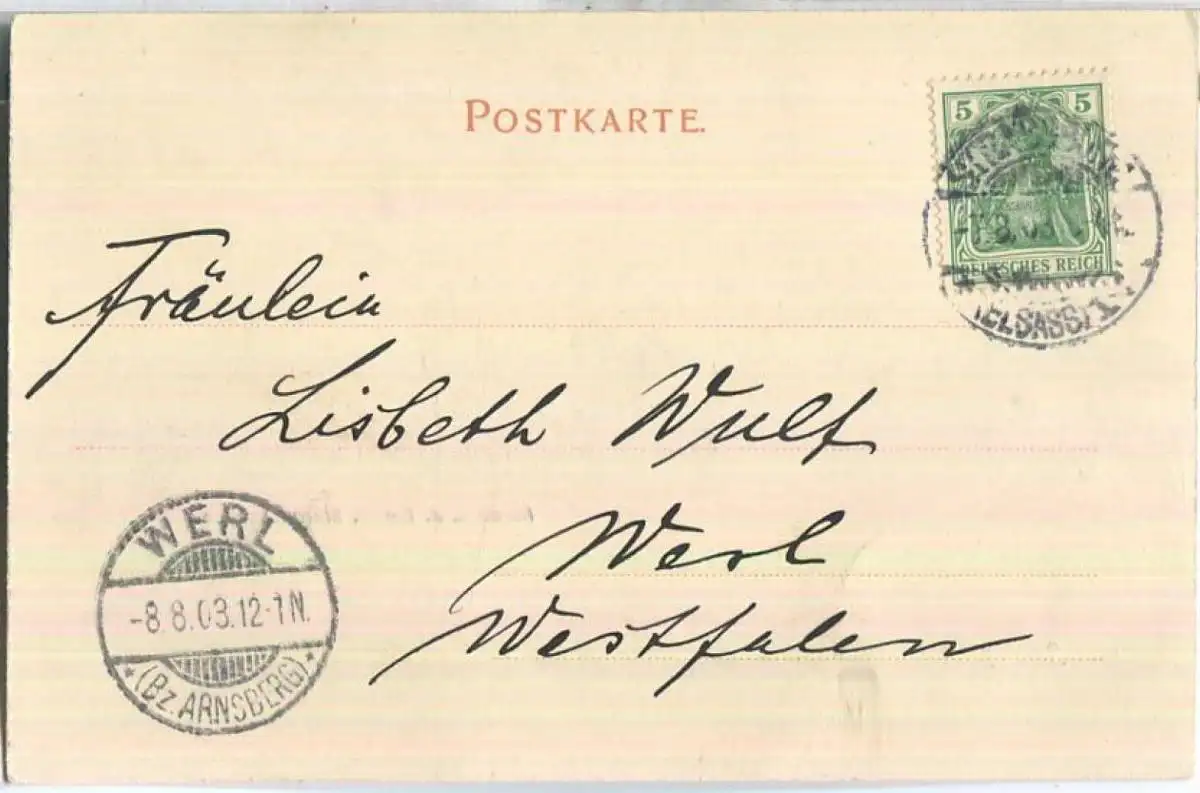 POSTKARTE.
5 5
DEUTSCHES REICH
(ELSASS) 1.
Fräulein
Lisbeth Wulf
Werl
Westfalen
WERL
-8.8.03.12-1N.
* (BZ. ARNSBERG) *